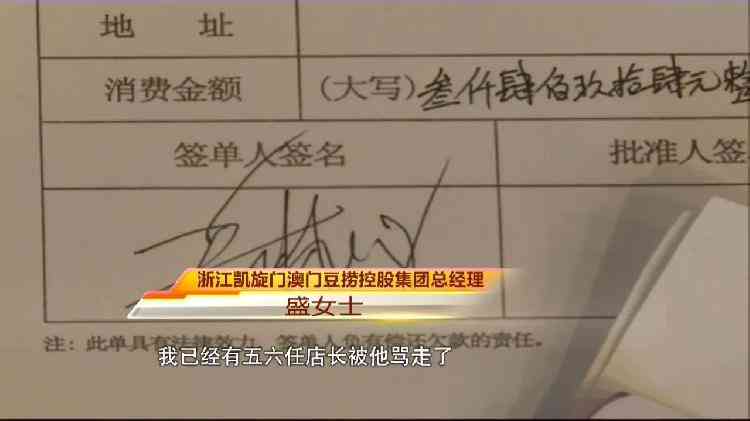 地 址
消费金额 (大写) 叁仟肆佰玖拾肆元整
签单人签名 批准人签
浙江凯旋门澳门豆捞控股集团总经理
盛女士
注：此单具有法律效力，签单人负有偿还欠款的责任。
我已经有五六任店长被他骂走了